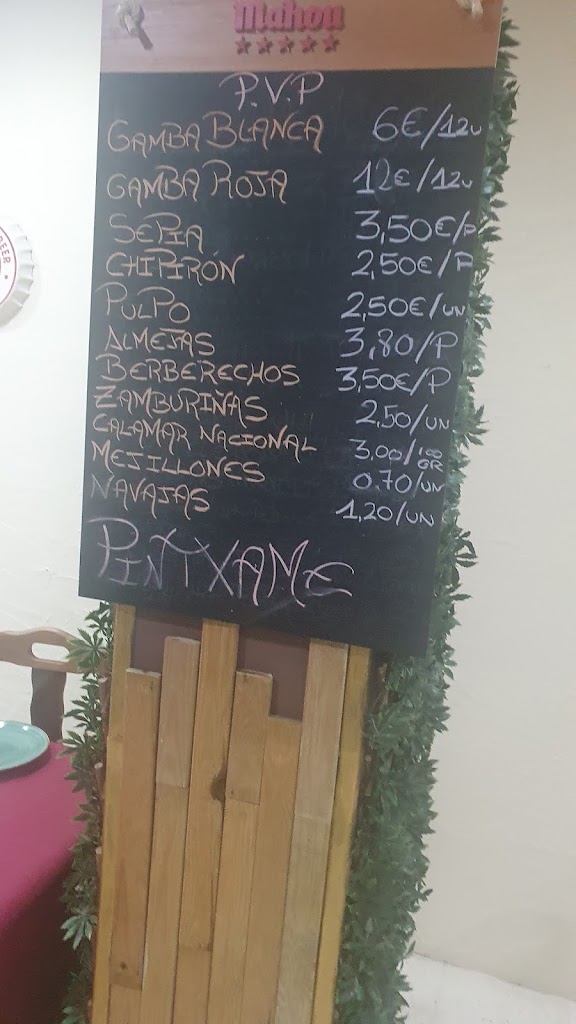 Mahou
P.V.P
GAMBA BLANCA 6€/12u
GAMBA ROJA 12€/12u
SEPIA 3,50€/P
CHIPIRÓN 2,50€/P
PULPO 2,50€/UN
ALMEJAS 3,80/P
BERBERECHOS 3,50€/P
ZAMBURIÑAS 2,50/UN
CALAMAR NACIONAL 3,00/100 GR
MEJILLONES 0.70/UN
NAVAJAS 1,20/UN
PINTXAME
BEER